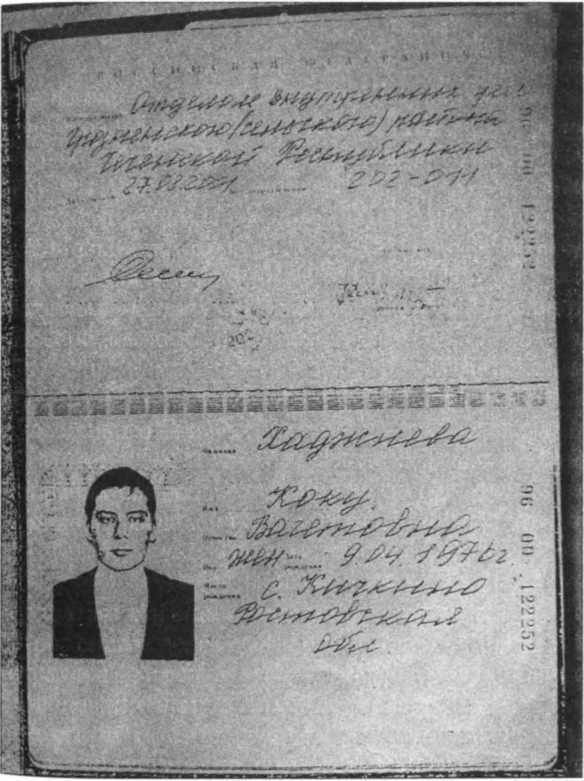 РОССИЙСКАЯ ФЕДЕРАЦИЯ
Отделом внутренних дел
Грозненского (сельского) района
Чеченской Республики
27.08.2001 202-011
96 00 122252
Хаджиева
Коку
Вагетовна
жен 9.04.1976г
с. Кичкино
Ростовская
обл.
96 00 122252